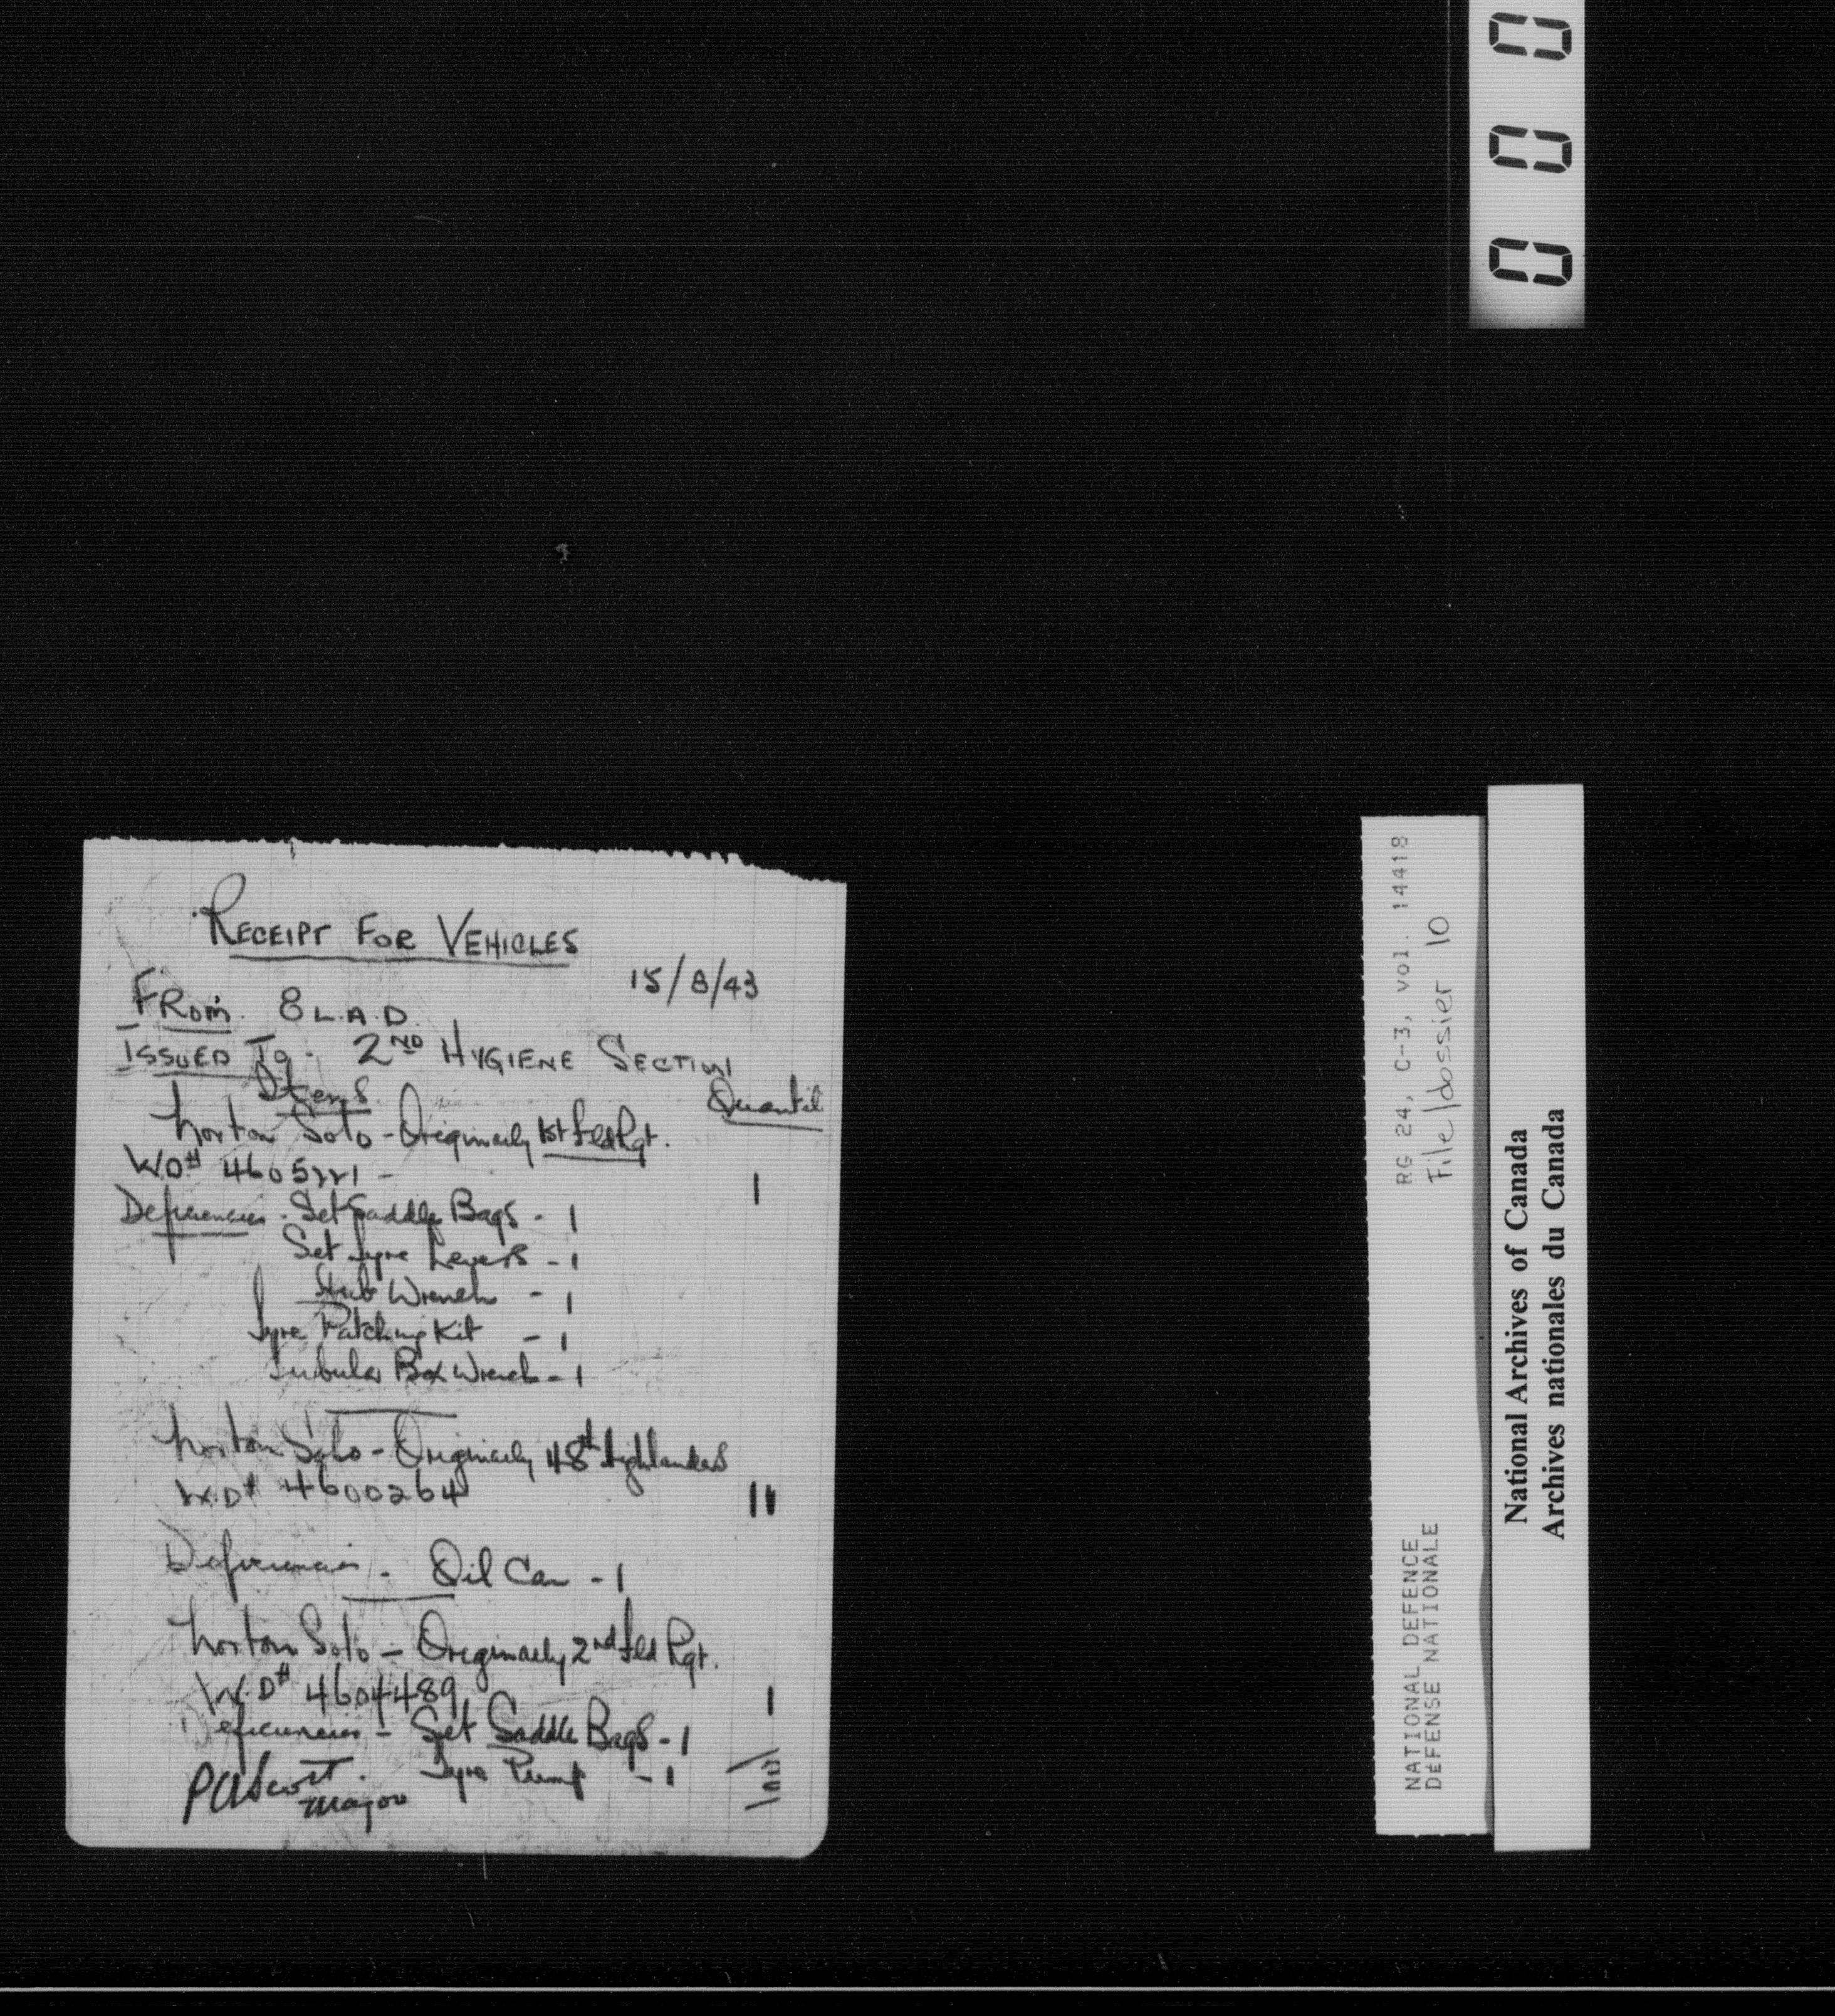 RECEIPT FOR VEHICLES
15/8/43
FROM. 8 L.A.D.
ISSUED TO - 2ND HYGIENE SECTION
Items Quantit
Norton Solo - Originally 1st Fld Rgt.
WD# 4605221 - 1
Deficiencies - Set Saddle Bags - 1
Set Tyre Levers - 1
Hub Wrench - 1
Tyre Patching Kit - 1
Tubular Box Wrench - 1
Norton Solo - Originally 48th Highlanders
W.D# 4600264 11
Deficiencies - Oil Can - 1
Norton Solo - Originally 2nd Fld Rgt.
W.D# 4604489 1
Deficiencies - Set Saddle Bags - 1
Tyre Pump - 1
Major
000
RG 24, C-3, vol. 14418
File/dossier 10
NATIONAL DEFENCE
DÉFENSE NATIONALE
National Archives of Canada
Archives nationales du Canada